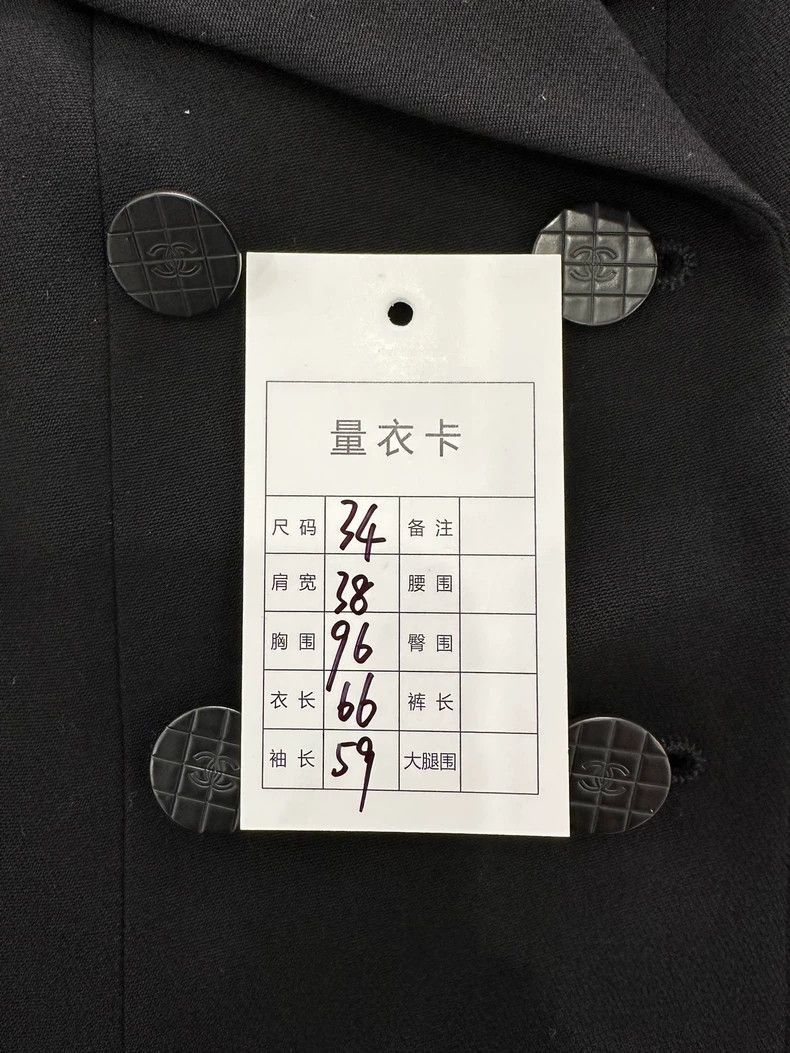 量衣卡
尺码 34 备注
肩宽 38 腰围
胸围 96 臀围
衣长 66 裤长
袖长 59 大腿围